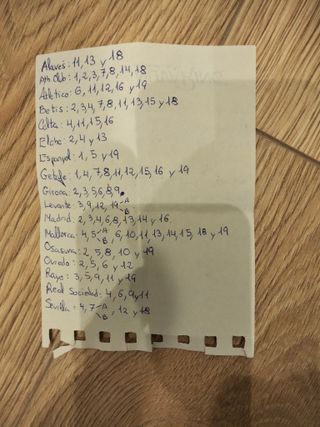 Alaves: 11, 13 y 18
Ath Club: 1, 2, 3, 7, 8, 14, 18
Atlético: 6, 11, 12, 16 y 19
Betis: 2, 3, 4, 7, 8, 11, 13, 15 y 18
Celta: 4, 11, 15, 16
Elche: 2, 4 y 13
Espanyol: 1, 5 y 19
Getafe: 1, 4, 7, 8, 11, 12, 15, 16 y 19
Girona: 2, 3, 5, 6, 8, 9.
Levante: 3, 9, 12, 19 A B
Madrid: 2, 3, 4, 6, 8, 13, 14 y 16.
Mallorca: 4, 5 A B, 6, 10, 11, 13, 14, 15, 18 y 19
Osasuna: 2, 5, 8, 10 y 19
Oviedo: 2, 5, 6 y 12
Rayo: 3, 5, 9, 11 y 19
Real Sociedad: 4, 6, 9 y 11
Sevilla: 4, 7 A B, 12 y 18